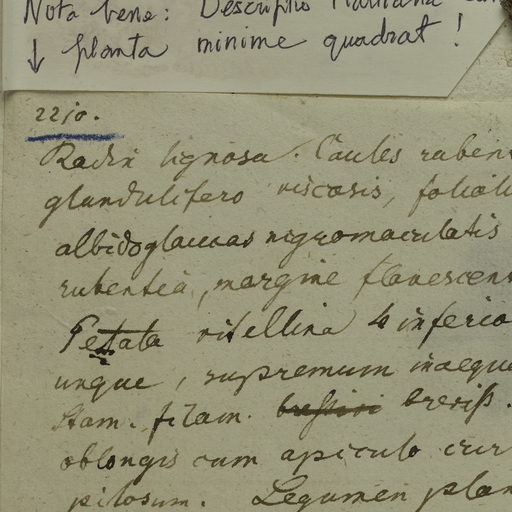 Nota bene: Descriptio
↓ planta minime quadrat!
2210.
Radix lignosa. Caules rubens
glandulifero viscosis, foliol
albidoglaucas nigromaculatis
rubentia, margine flavescens
Petala vitellina 4 inferio
ungue, supremum inaequ
Stam. filam. breviss.
oblongis cum apiculo
pilosum. Legumen plan